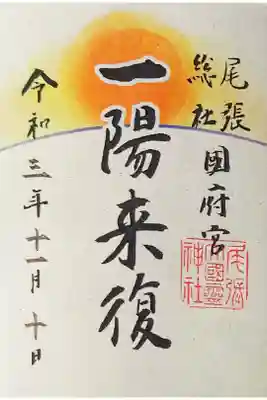 尾張
総社
國府宮
尾張
大國靈
神社
一陽来復
令和三年十一月十日